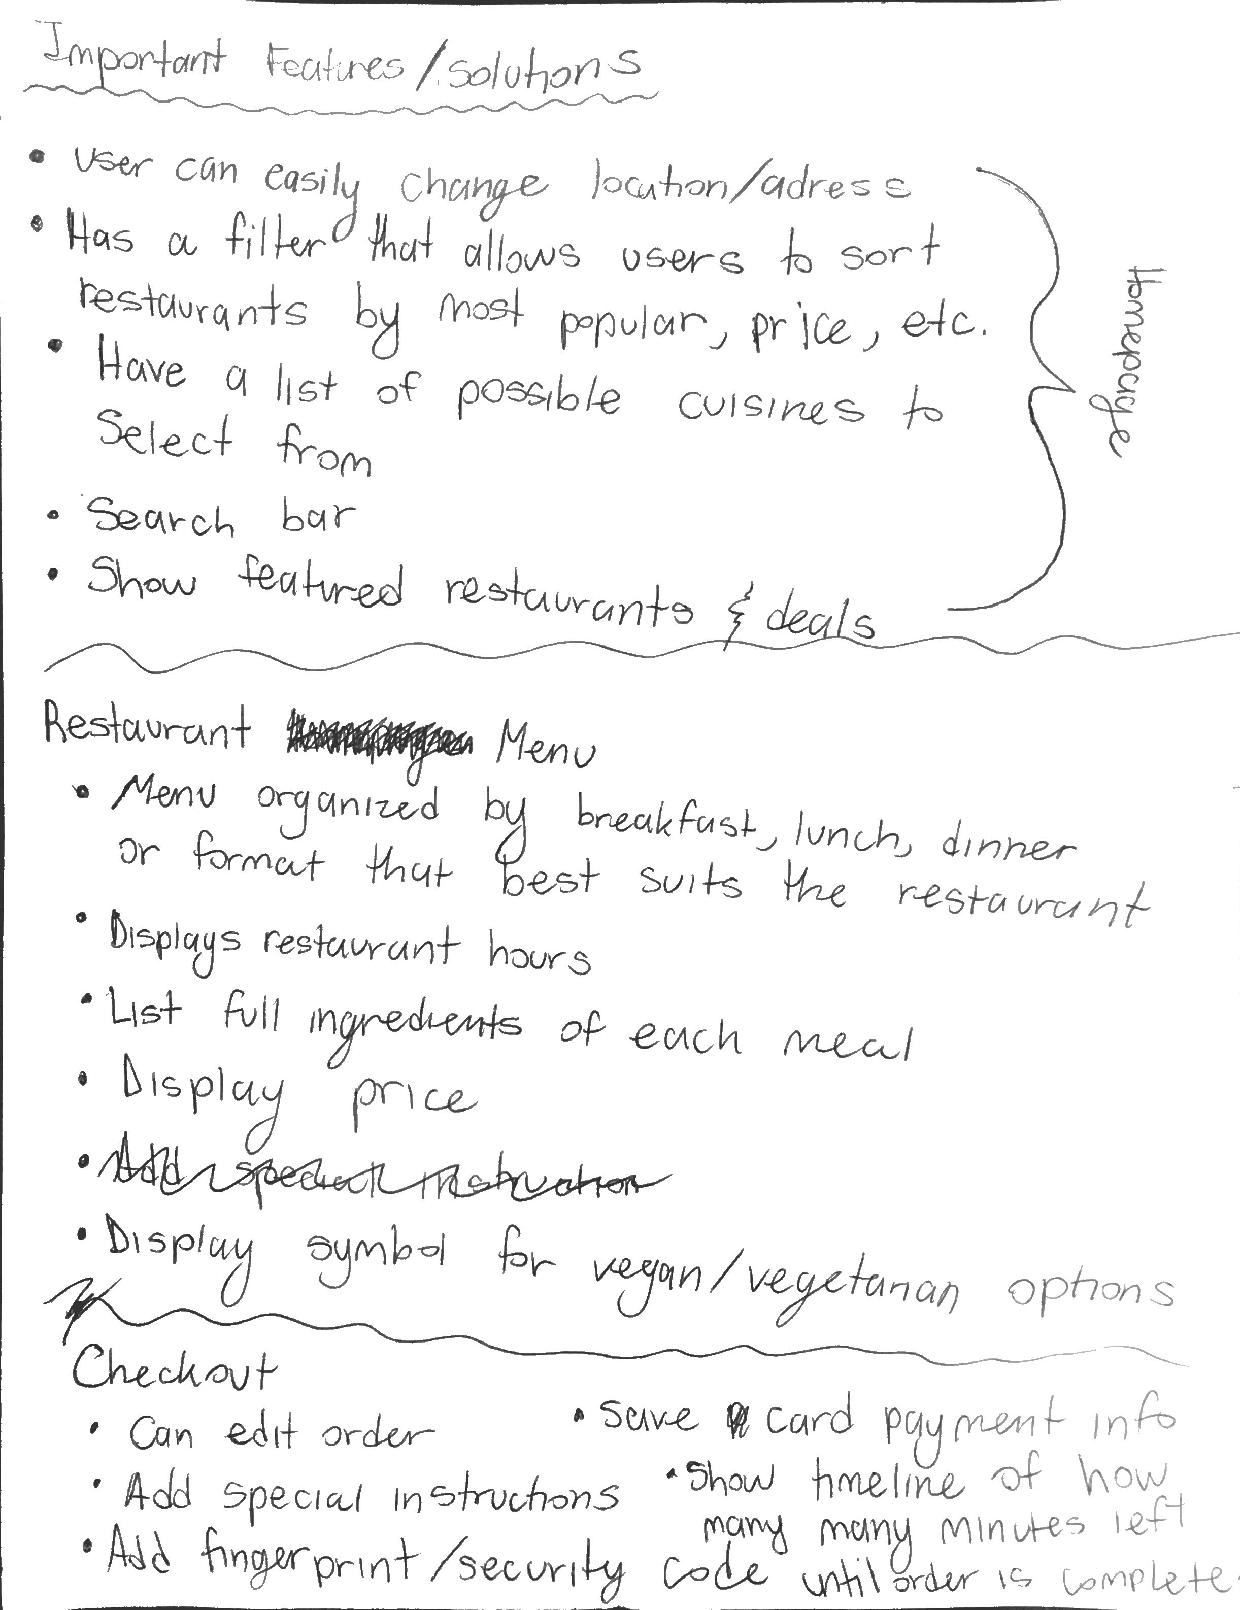 Important Features/solutions
• user can easily change location/adress
• Has a filter that allows users to sort
restaurants by most popular, price, etc.
• Have a list of possible cuisines to
Select from
• Search bar
• Show featured restaurants & deals
Homepage
Restaurant Menu
• Menu organized by breakfast, lunch, dinner
or format that best suits the restaurant
• Displays restaurant hours
• List full ingredients of each meal
• Display price
• Add special instruction
• Display symbol for vegan/vegetarian options
Checkout
• Can edit order
• Add special instructions
• Add fingerprint/security code
• save card payment info
• Show timeline of how
many many minutes left
until order is complete